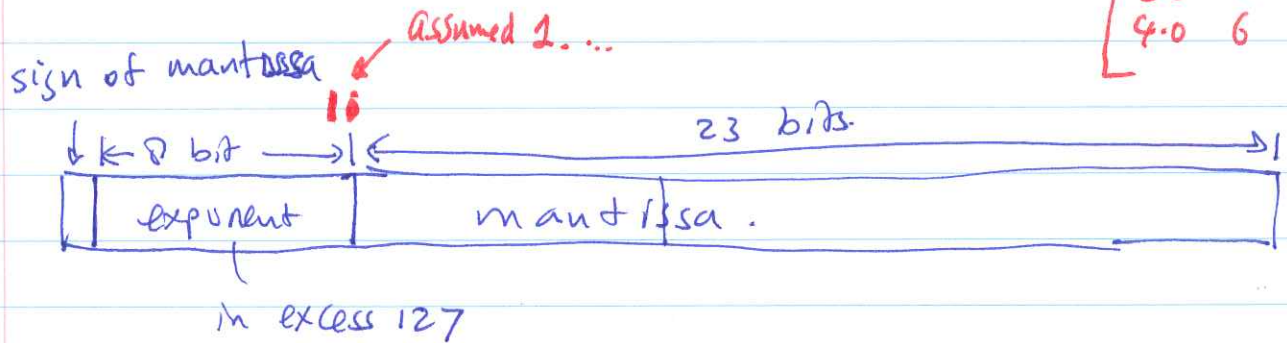 assumed 1. ...
4.0 6
sign of mantissa
1.
8 bit
23 bits.
exponent
mantissa.
in excess 127